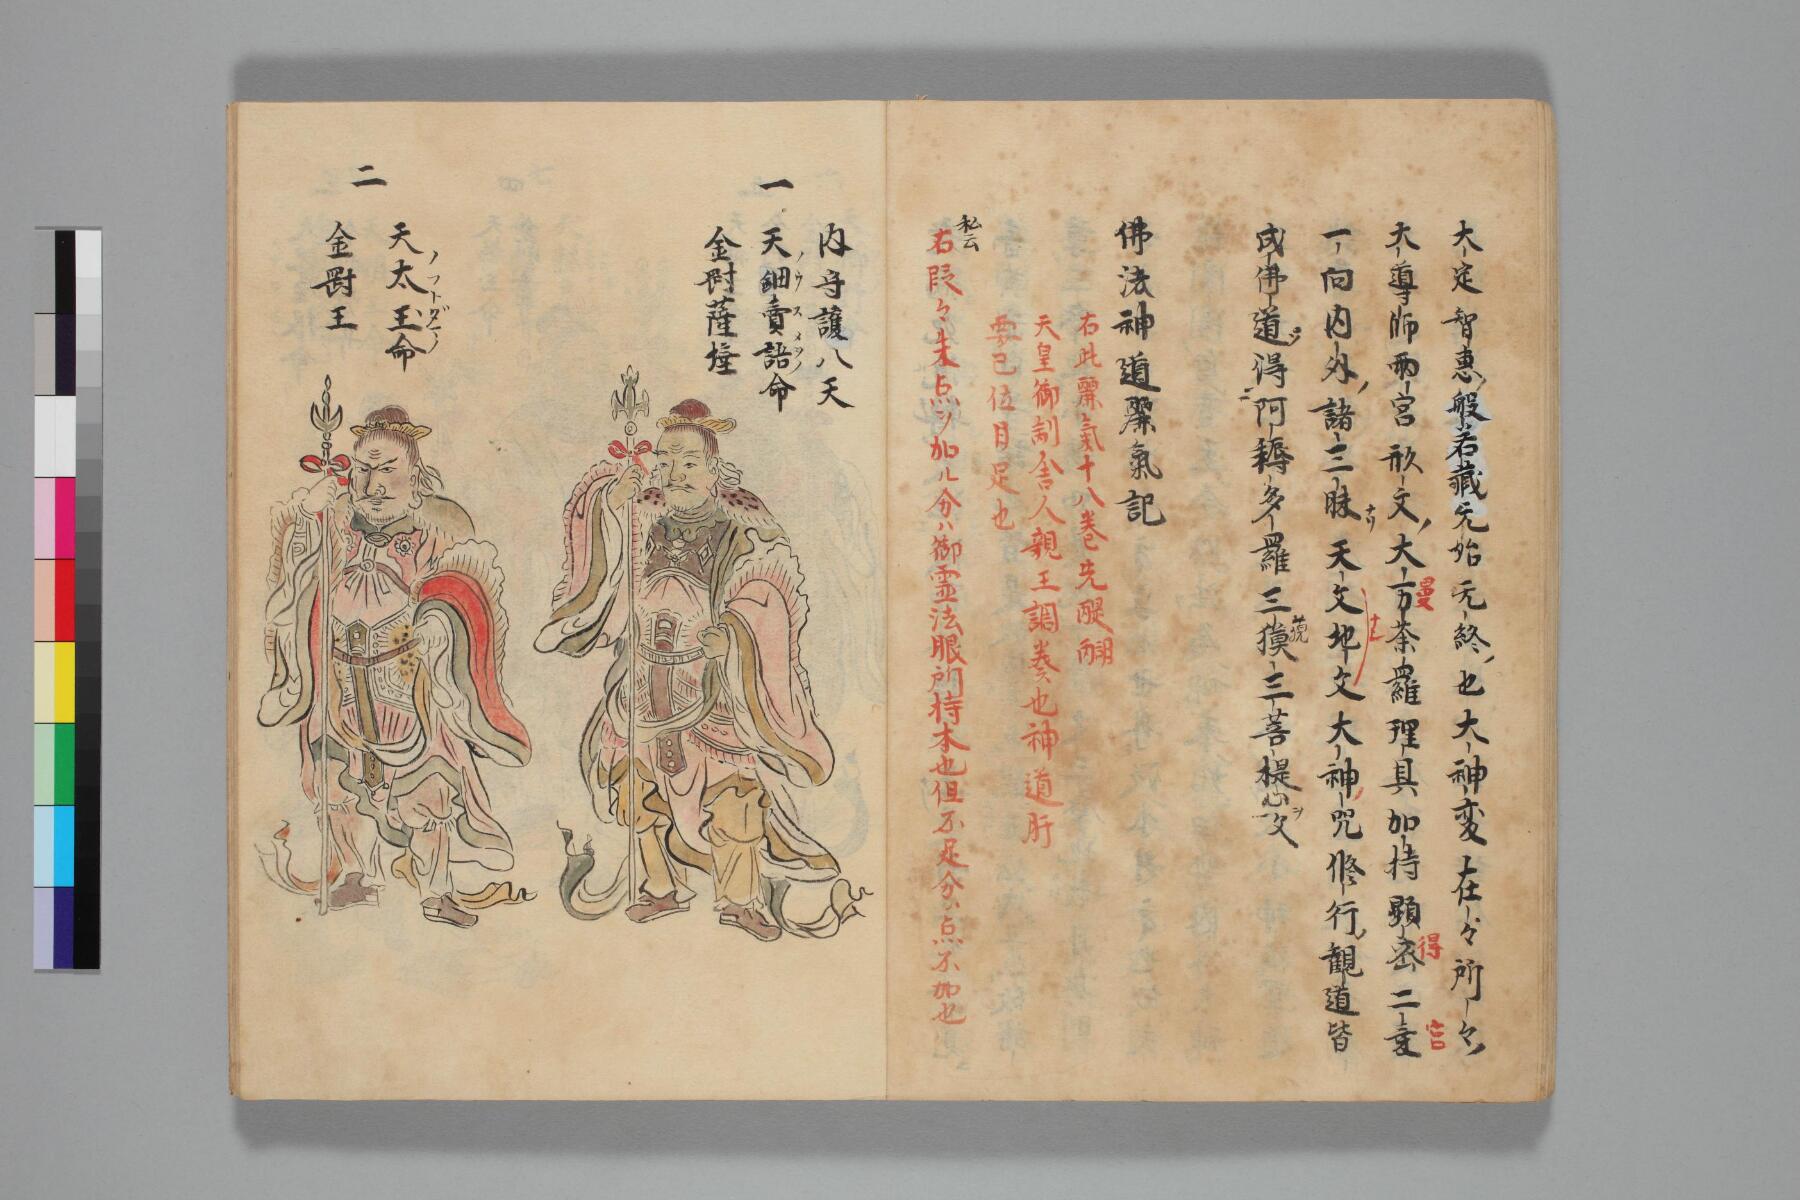 大定智惠般若藏无始无終也大神変在々所々
大導師兩宮形文大万荼羅理具加持顯密二意
曼
得
宮
一向内外諸三昧ナリ天文地文大神咒修行観道皆
成佛道ヲ得阿耨多羅三獏三菩提心文
藐
佛法神道麗氣記
右此麗氣十八卷先醍醐
天皇御制舎人親王調卷也神道肝
要己位目足也
私云
右段々朱点ヲ加ル分ハ御霊法眼所持本也但不足分ハ点不加也
内守護八天
一
天鈿賣語命
ノウスメヲノ
金剛薩埵
二
天太玉命
ノフトダマノ
金剛王